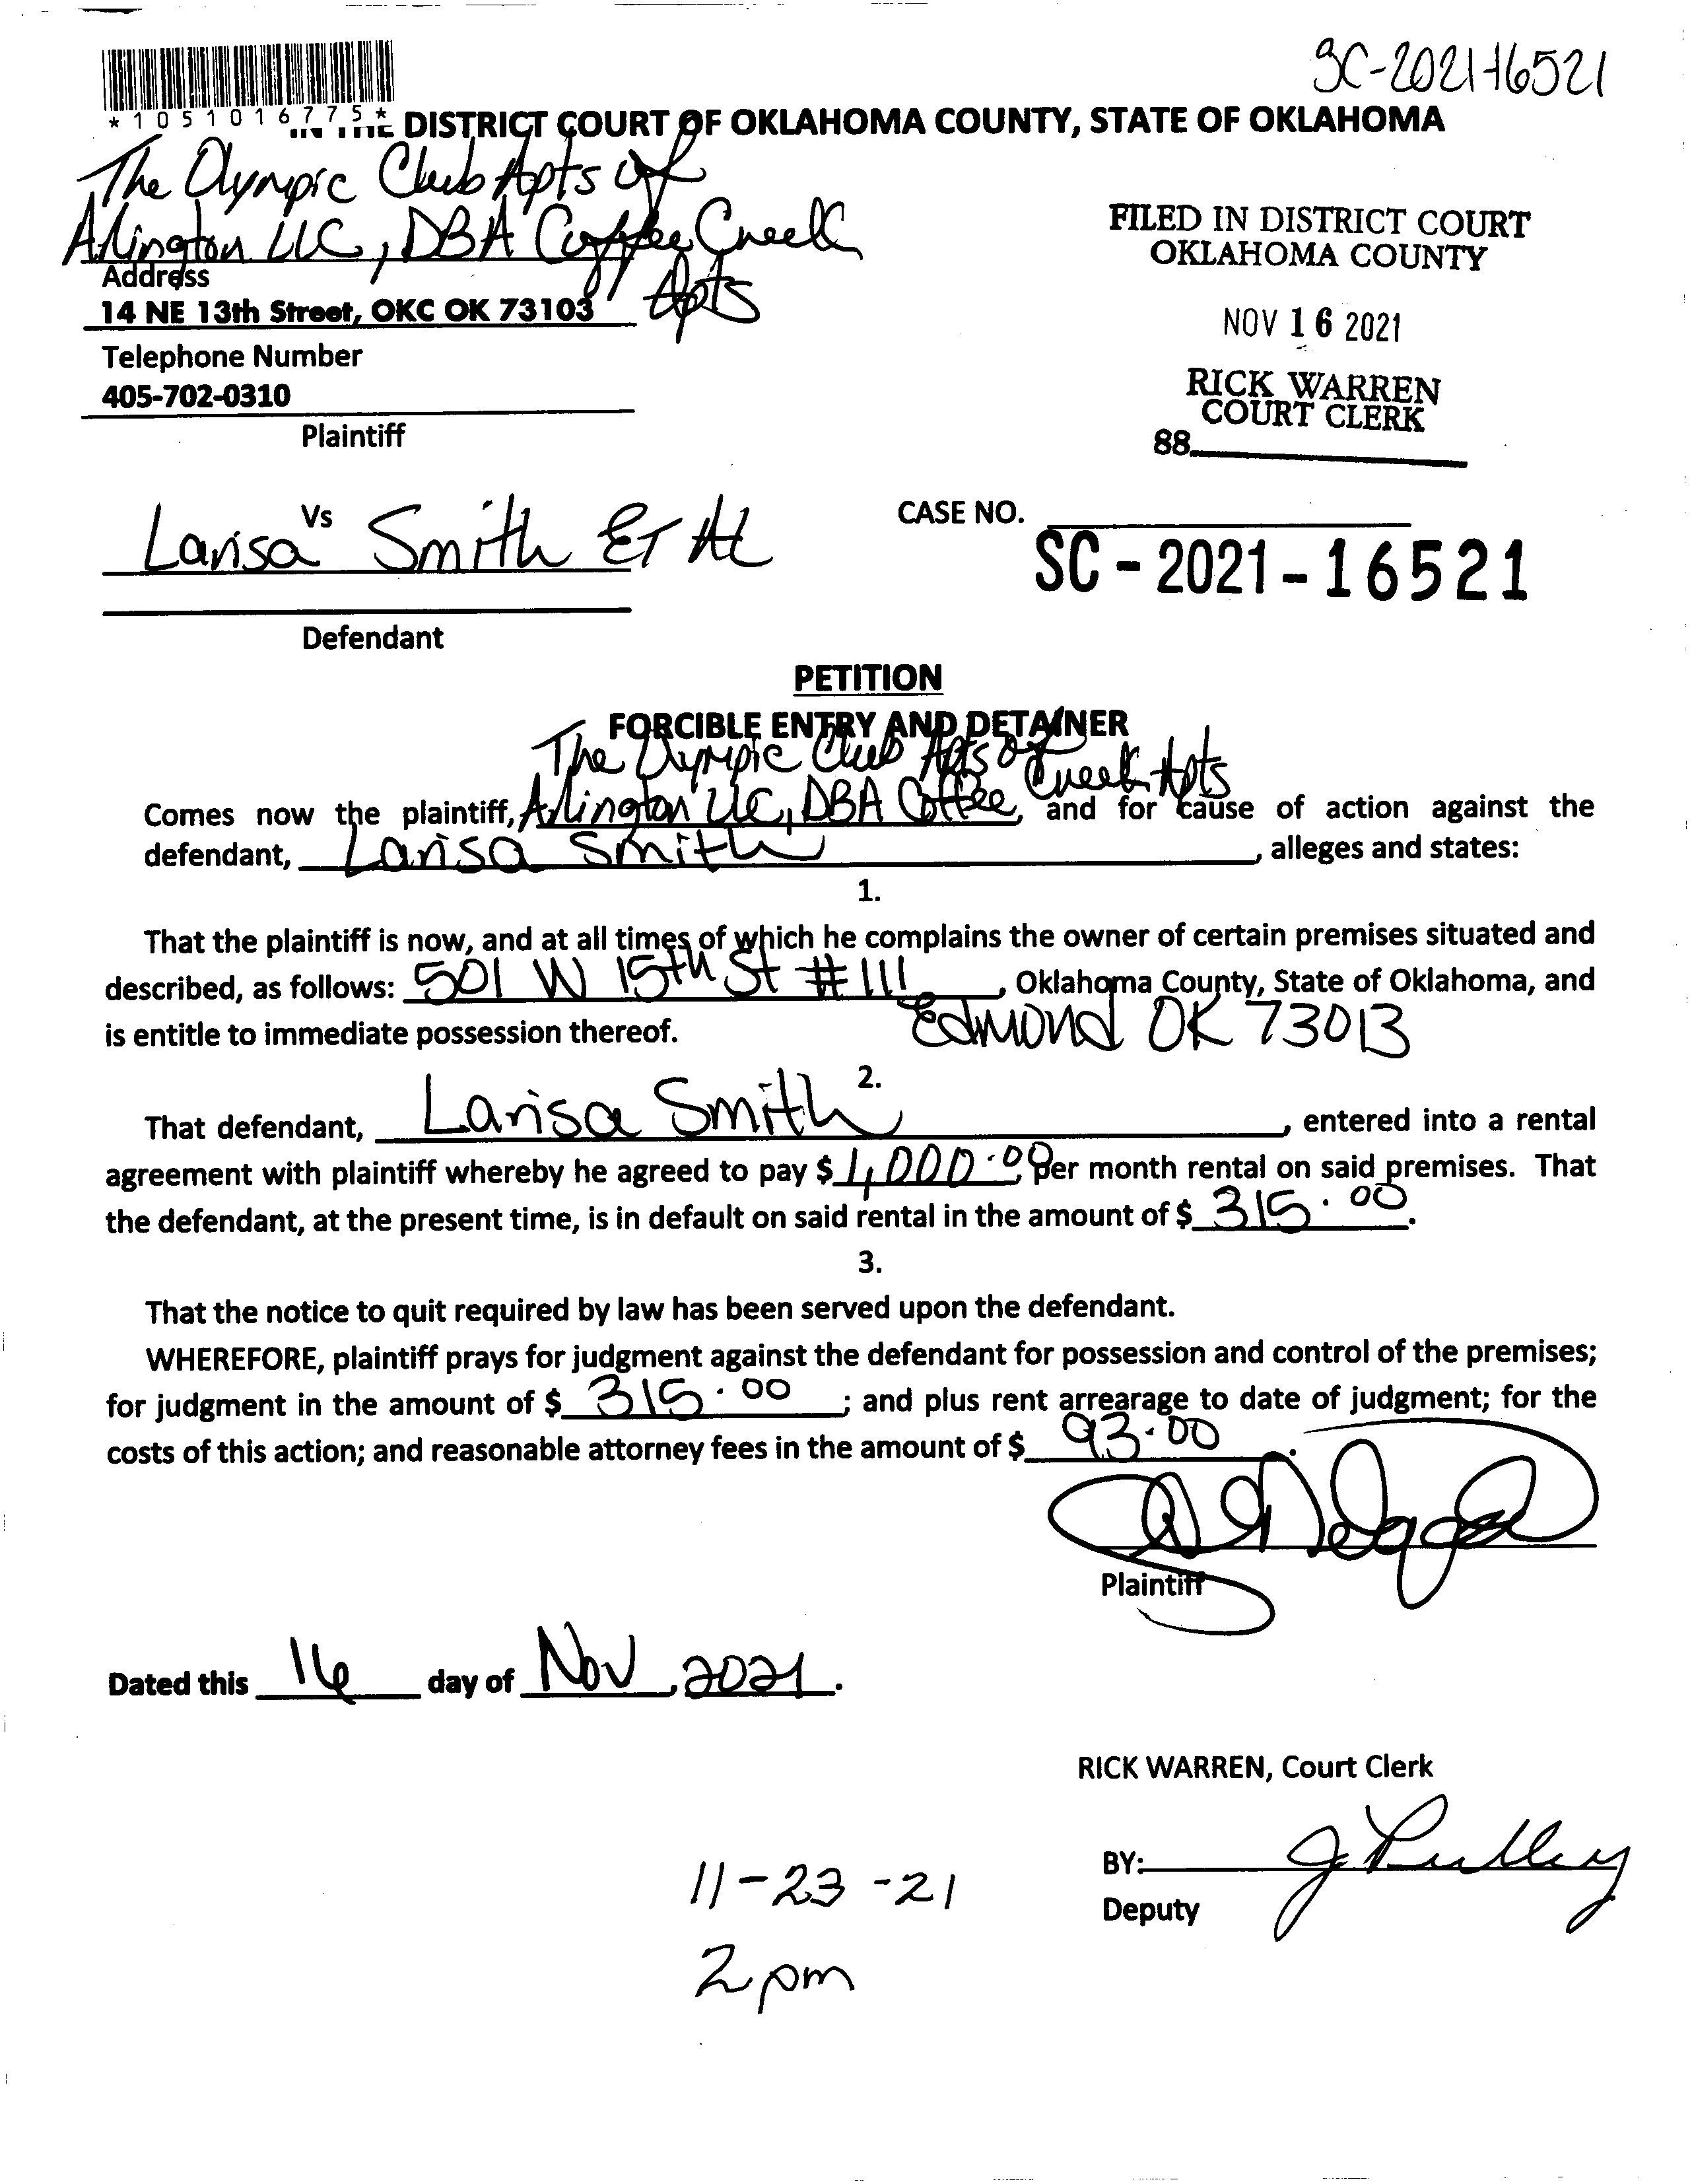 SC-2021-16521
*1051016775*
THE DISTRICT COURT OF OKLAHOMA COUNTY, STATE OF OKLAHOMA
The Olympic Club Apts of
Arlington LLC, DBA Coffee Creek
Apts
Address
14 NE 13th Street, OKC OK 73103
Telephone Number
405-702-0310
Plaintiff
FILED IN DISTRICT COURT
OKLAHOMA COUNTY
NOV 16 2021
RICK WARREN
COURT CLERK
88
Vs
Larisa Smith ET AL
Defendant
CASE NO.
SC-2021-16521
PETITION
FORCIBLE ENTRY AND DETAINER
The Olympic Club Apts of
Comes now the plaintiff, Arlington LLC, DBA Coffee Creek Apts, and for cause of action against the
defendant, Larisa Smith, alleges and states:
1.
That the plaintiff is now, and at all times of which he complains the owner of certain premises situated and
described, as follows: 501 W 15th St #111, Oklahoma County, State of Oklahoma, and
is entitle to immediate possession thereof. Edmond OK 73013
2.
That defendant, Larisa Smith, entered into a rental
agreement with plaintiff whereby he agreed to pay $1,000.00 per month rental on said premises. That
the defendant, at the present time, is in default on said rental in the amount of $ 315.00.
3.
That the notice to quit required by law has been served upon the defendant.
WHEREFORE, plaintiff prays for judgment against the defendant for possession and control of the premises;
for judgment in the amount of $ 315.00; and plus rent arrearage to date of judgment; for the
costs of this action; and reasonable attorney fees in the amount of $ 93.00.
Plaintiff
Dated this 16 day of Nov, 2021.
RICK WARREN, Court Clerk
BY: J Pulley
Deputy
11-23-21
2pm